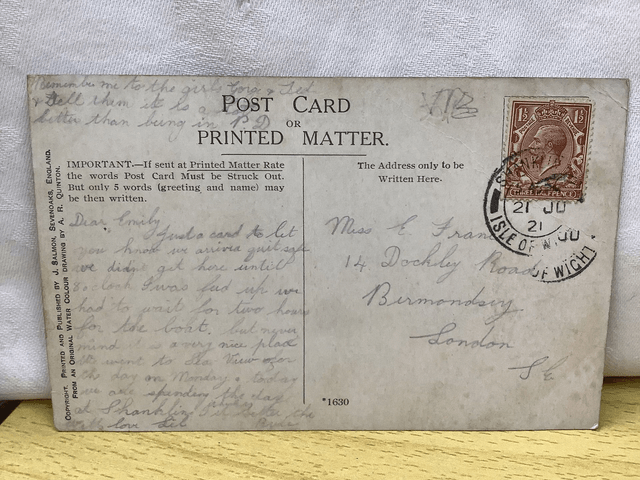 Remember me to the girls Cora & Ted
& tell them it is a
better than being in P D
POST CARD
OR
PRINTED MATTER.
IMPORTANT.—If sent at Printed Matter Rate
the words Post Card Must be Struck Out.
But only 5 words (greeting and name) may
be then written.
The Address only to be
Written Here.
1½ 1½
21 JU
21
ISLE OF WIGHT
OF WIGHT
COPYRIGHT. PRINTED AND PUBLISHED BY J. SALMON, SEVENOAKS, ENGLAND.
FROM AN ORIGINAL WATER COLOUR DRAWING BY A. R. QUINTON.
Dear Emily
Just a card to let
you know we arrived quite safe
we didn't get here until
8 o clock I was fed up we
had to wait for two hours
for the boat, but never
mind it a very nice place
we went to Sea View for
the day on Monday & today
we are spending the day
at Shanklin
love
Miss E Fran
14 Dockley Road
Bermondsey
London
S E
*1630